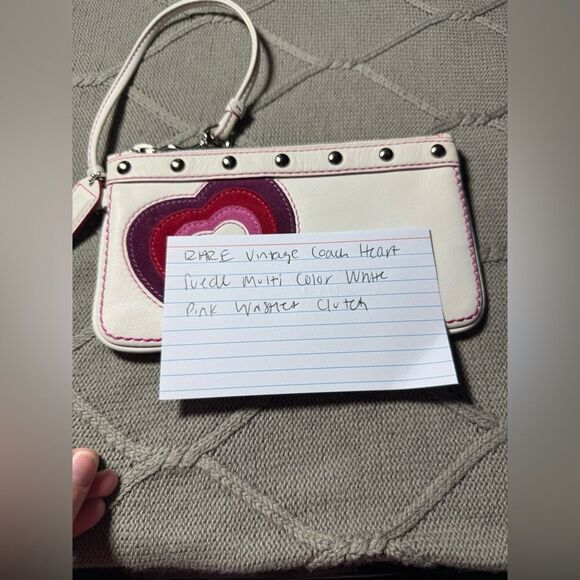 RARE Vintage Coach Heart
Suede Multi Color White
Pink Wristlet Clutch